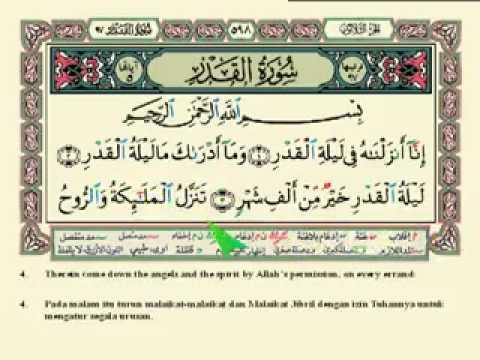 الجزء الثلاثون ٥٩٨ سورة القدر ٩٧
ترتيبها آياتها ٥
سُورَةُ الْقَدْرِ
بِسْمِ اللَّهِ الرَّحْمَٰنِ الرَّحِيمِ
إِنَّا أَنزَلْنَٰهُ فِي لَيْلَةِ الْقَدْرِ ۝ وَمَا أَدْرَىٰكَ مَا لَيْلَةُ الْقَدْرِ ۝
لَيْلَةُ الْقَدْرِ خَيْرٌ مِّنْ أَلْفِ شَهْرٍ ۝ تَنَزَّلُ الْمَلَٰٓئِكَةُ وَالرُّوحُ
4. Therein come down the angels and the spirit by Allah's permission, on every errand:
4. Pada malam itu turun malaikat-malaikat dan Malaikat Jibril dengan izin Tuhannya untuk
mengatur segala urusan.